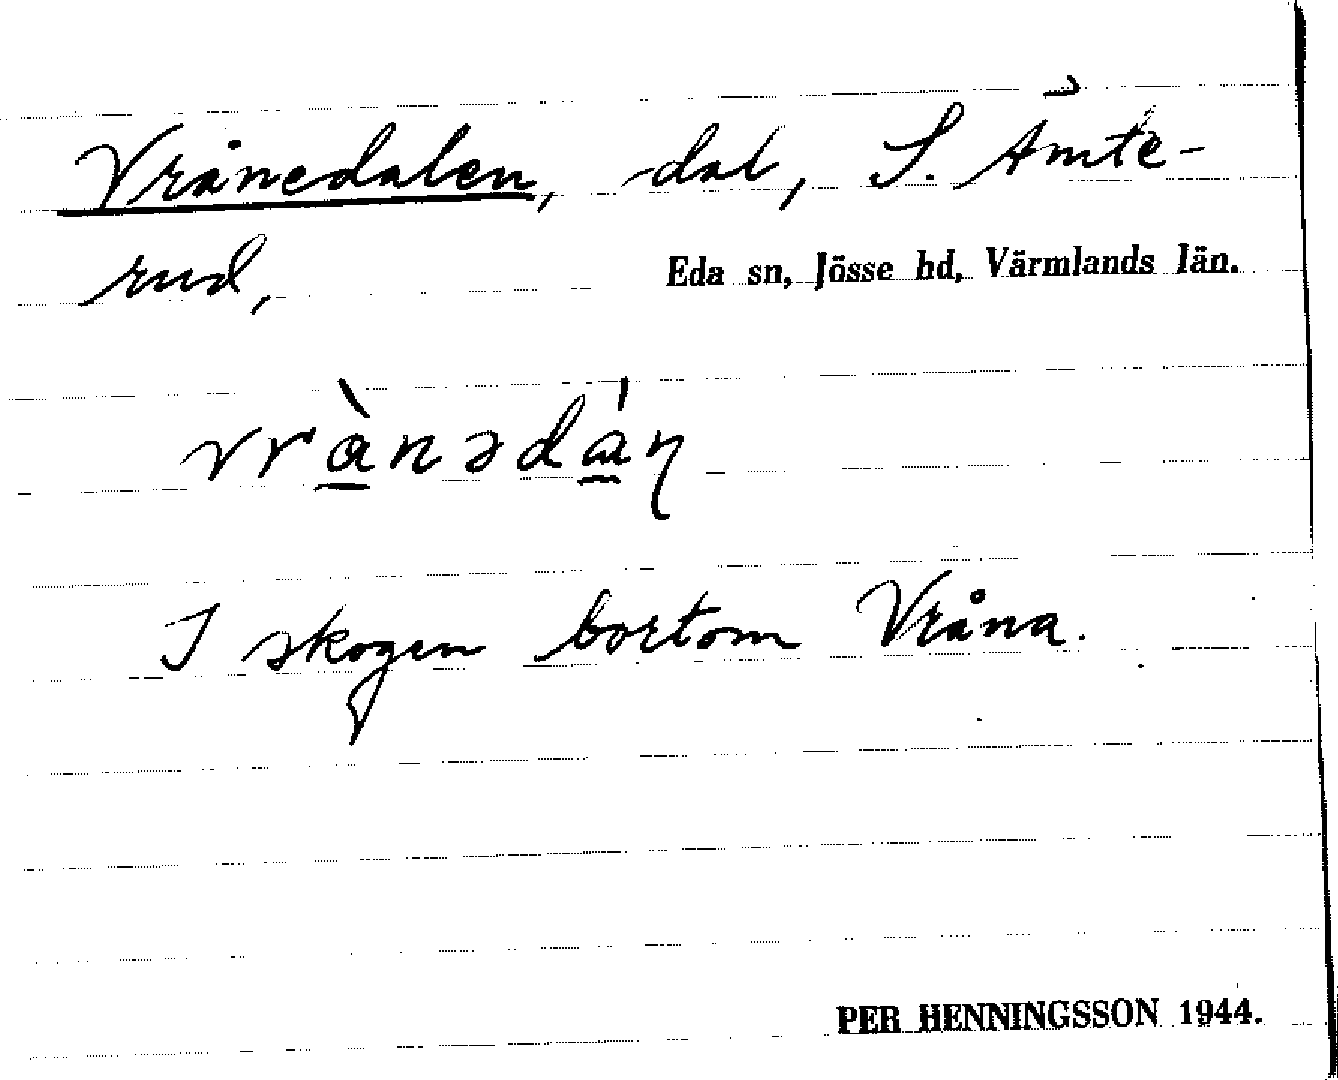 Vrånedalen, dal, S. Åmte-
rud,
Eda sn, Jösse hd, Värmlands län.
vrànədáɳ
I skogen bortom Vråna.
PER HENNINGSSON 1944.